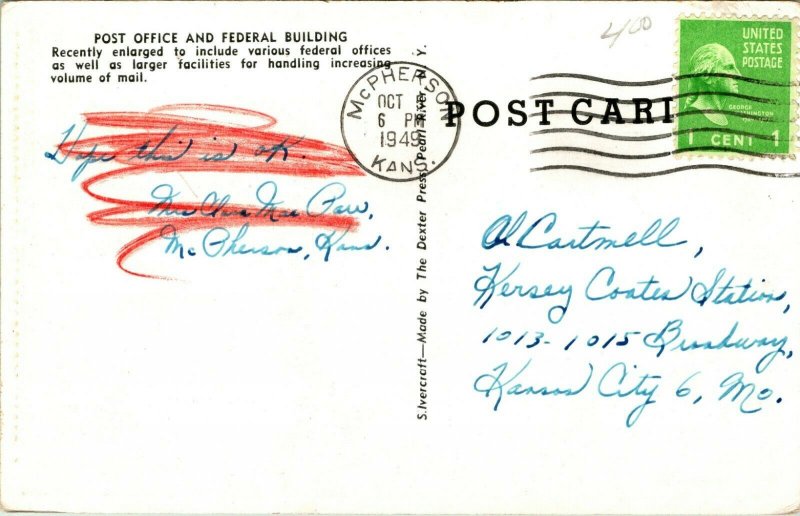 POST OFFICE AND FEDERAL BUILDING
Recently enlarged to include various federal offices
as well as larger facilities for handling increasing
volume of mail.
Hope this is OK.
Mrs Clara Mae
McPherson, Kans.
S.Ivercroft—Made by The Dexter Press, Pearl River, N. Y.
McPHERSON
OCT
6 PM
1949
KANS.
POST CARD
400
UNITED
STATES
POSTAGE
GEORGE
WASHINGTON
1 CENT 1
Al Cartmell,
Kersey Coates Station,
1013-1015 Broadway,
Kansas City 6, Mo.